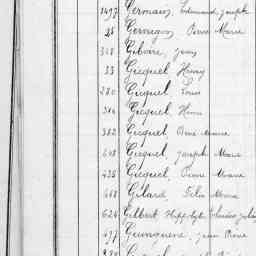 1497 Germain, Edmond Joseph
25 Gernigon, Pierre Marie
318 Giboire, Jean
33 Gicquel, Henry
280 Gicquel, Louis
314 Gicquel, Henri
382 Gicquel, René Marie
Gicquel, Joseph Marie
435 Gicquel, Pierre Marie
Gilard, Félix Marie
624 Gilbert Hippolyte
497 Guinguené, Jean Pierre